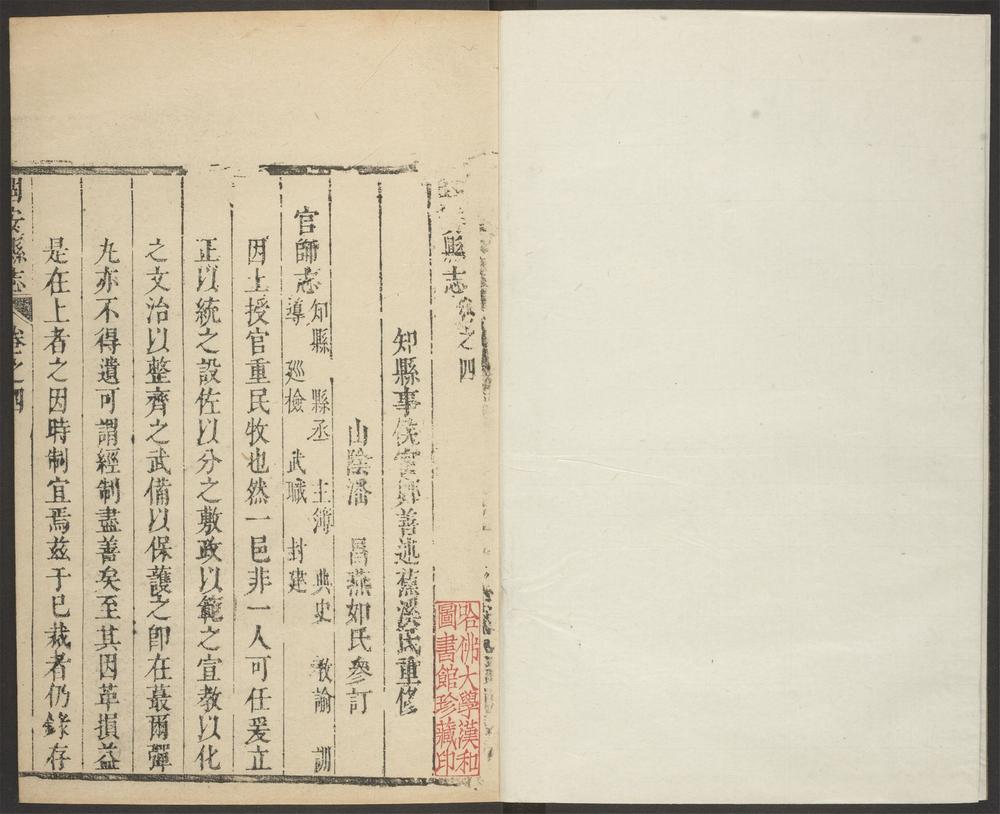 縣志卷之四
知縣事侯官鄭善述蕉溪氏重修
山陰潘 昌燕如氏參訂
官師志 知縣 縣丞 主簿 典史 教諭 訓
導 廵檢 武職 封建
因土授官重民牧也然一邑非一人可任爰立
正以統之設佐以分之敷政以範之宣教以化
之文治以整齊之武備以保護之即在蕞爾彈
丸亦不得遺可謂經制盡善矣至其因革損益
是在上者之因時制宜焉兹于已裁者仍錄存
固安縣志 卷之四
哈佛大學漢和
圖書館珍藏印